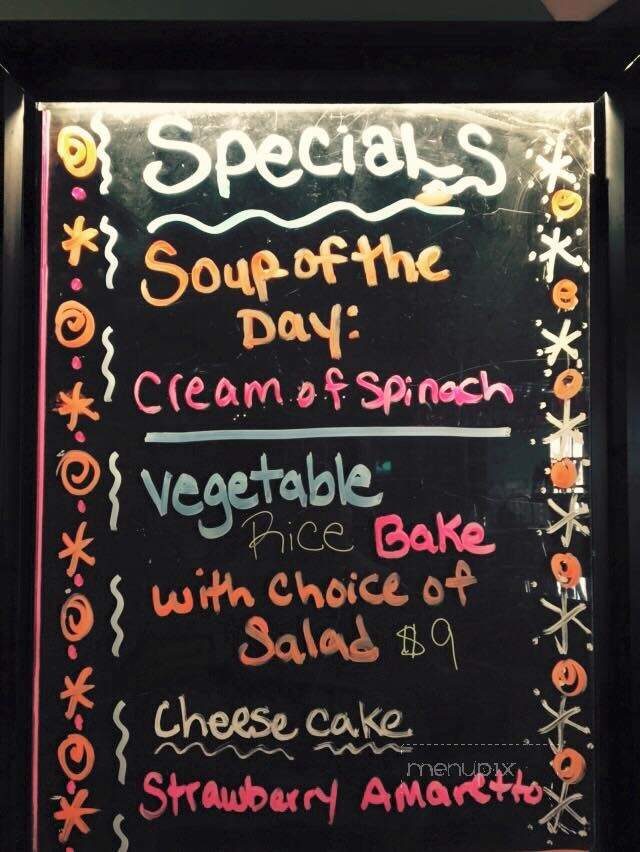 Specials
Soup of the
Day:
Cream of Spinach
Vegetable
Rice Bake
with choice of
Salad $9
Cheese cake
menupix
Strawberry Amaretto